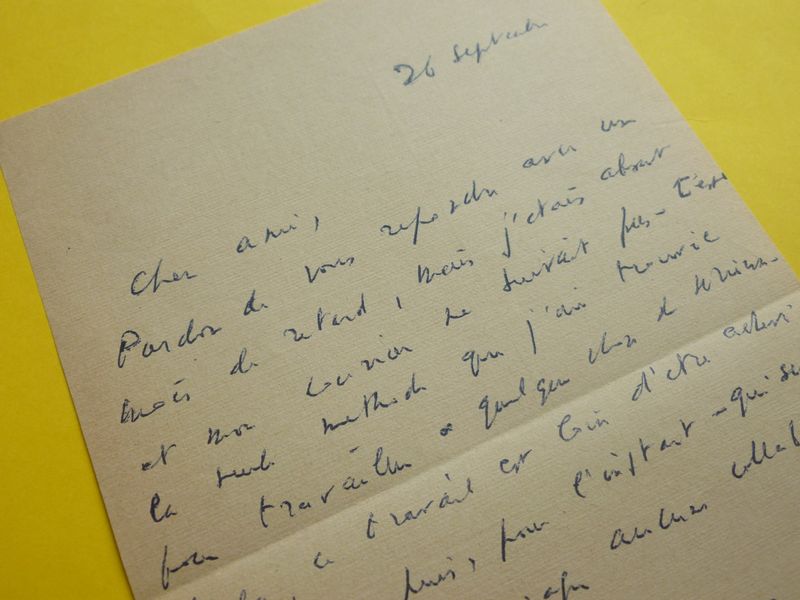 26 septembre
Cher ami,
Pardon de vous répondre avec un
mois de retard, mais j'étais absent
et mon courrier ne suivait pas - C'est
la seule méthode que j'ai trouvée
pour travailler à quelque chose de
ce travail est loin d'être achevé
puis, pour l'instant - qui se
aucune